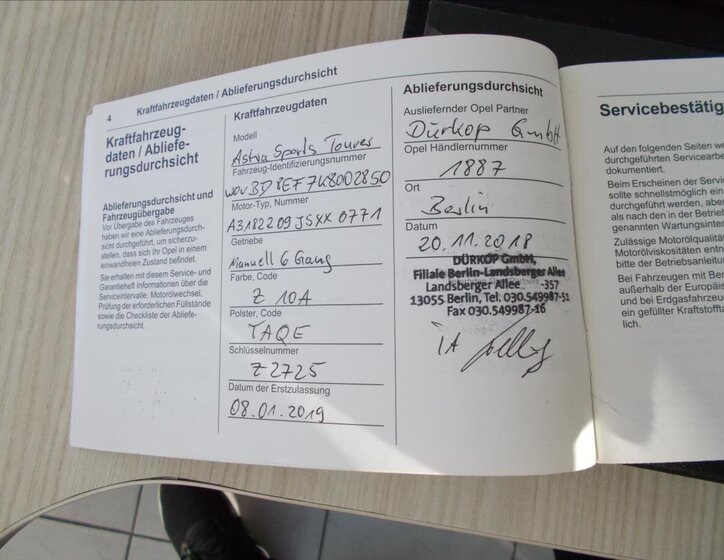 4 Kraftfahrzeugdaten / Ablieferungsdurchsicht
Kraftfahrzeug-
daten / Abliefe-
rungsdurchsicht
Ablieferungsdurchsicht und
Fahrzeugübergabe
Vor Übergabe des Fahrzeuges
haben wir eine Ablieferungsdurch-
sicht durchgeführt, um sicherzu-
stellen, dass sich Ihr Opel in einem
einwandfreien Zustand befindet.
Sie erhalten mit diesem Service- und
Garantieheft Informationen über die
Serviceintervalle, Motorölwechsel,
Prüfung der erforderlichen Füllstände
sowie die Checkliste der Abliefe-
rungsdurchsicht.
Kraftfahrzeugdaten
Modell
Astra Sports Tourer
Fahrzeug-Identifizierungsnummer
W0VBD8EF7K8002850
Motor-Typ, Nummer
A3182209JSXX0771
Getriebe
Manuell 6 Gang
Farbe, Code
Z 10A
Polster, Code
TAQE
Schlüsselnummer
Z2725
Datum der Erstzulassung
08.01.2019
Ablieferungsdurchsicht
Ausliefernder Opel Partner
Dürkop GmbH
Opel Händlernummer
1887
Ort
Berlin
Datum
20.11.2018
DÜRKOP GmbH,
Filiale Berlin-Landsberger Allee
Landsberger Allee -357
13055 Berlin, Tel. 030.549987-51
Fax 030.549987-16
iA
Servicebestätig
Auf den folgenden Seiten we
durchgeführten Servicearbe
dokumentiert.
Beim Erscheinen der Servic
sollte schnellstmöglich ein
durchgeführt werden, aber
als nach den in der Betrieb
genannten Wartungsinter
Zulässige Motorölqualität
Motorölviskositäten entn
bitte der Betriebsanleitu
Bei Fahrzeugen mit Be
außerhalb der Europäis
und bei Erdgasfahrzeug
ein gefüllter Kraftstoffta
lich.